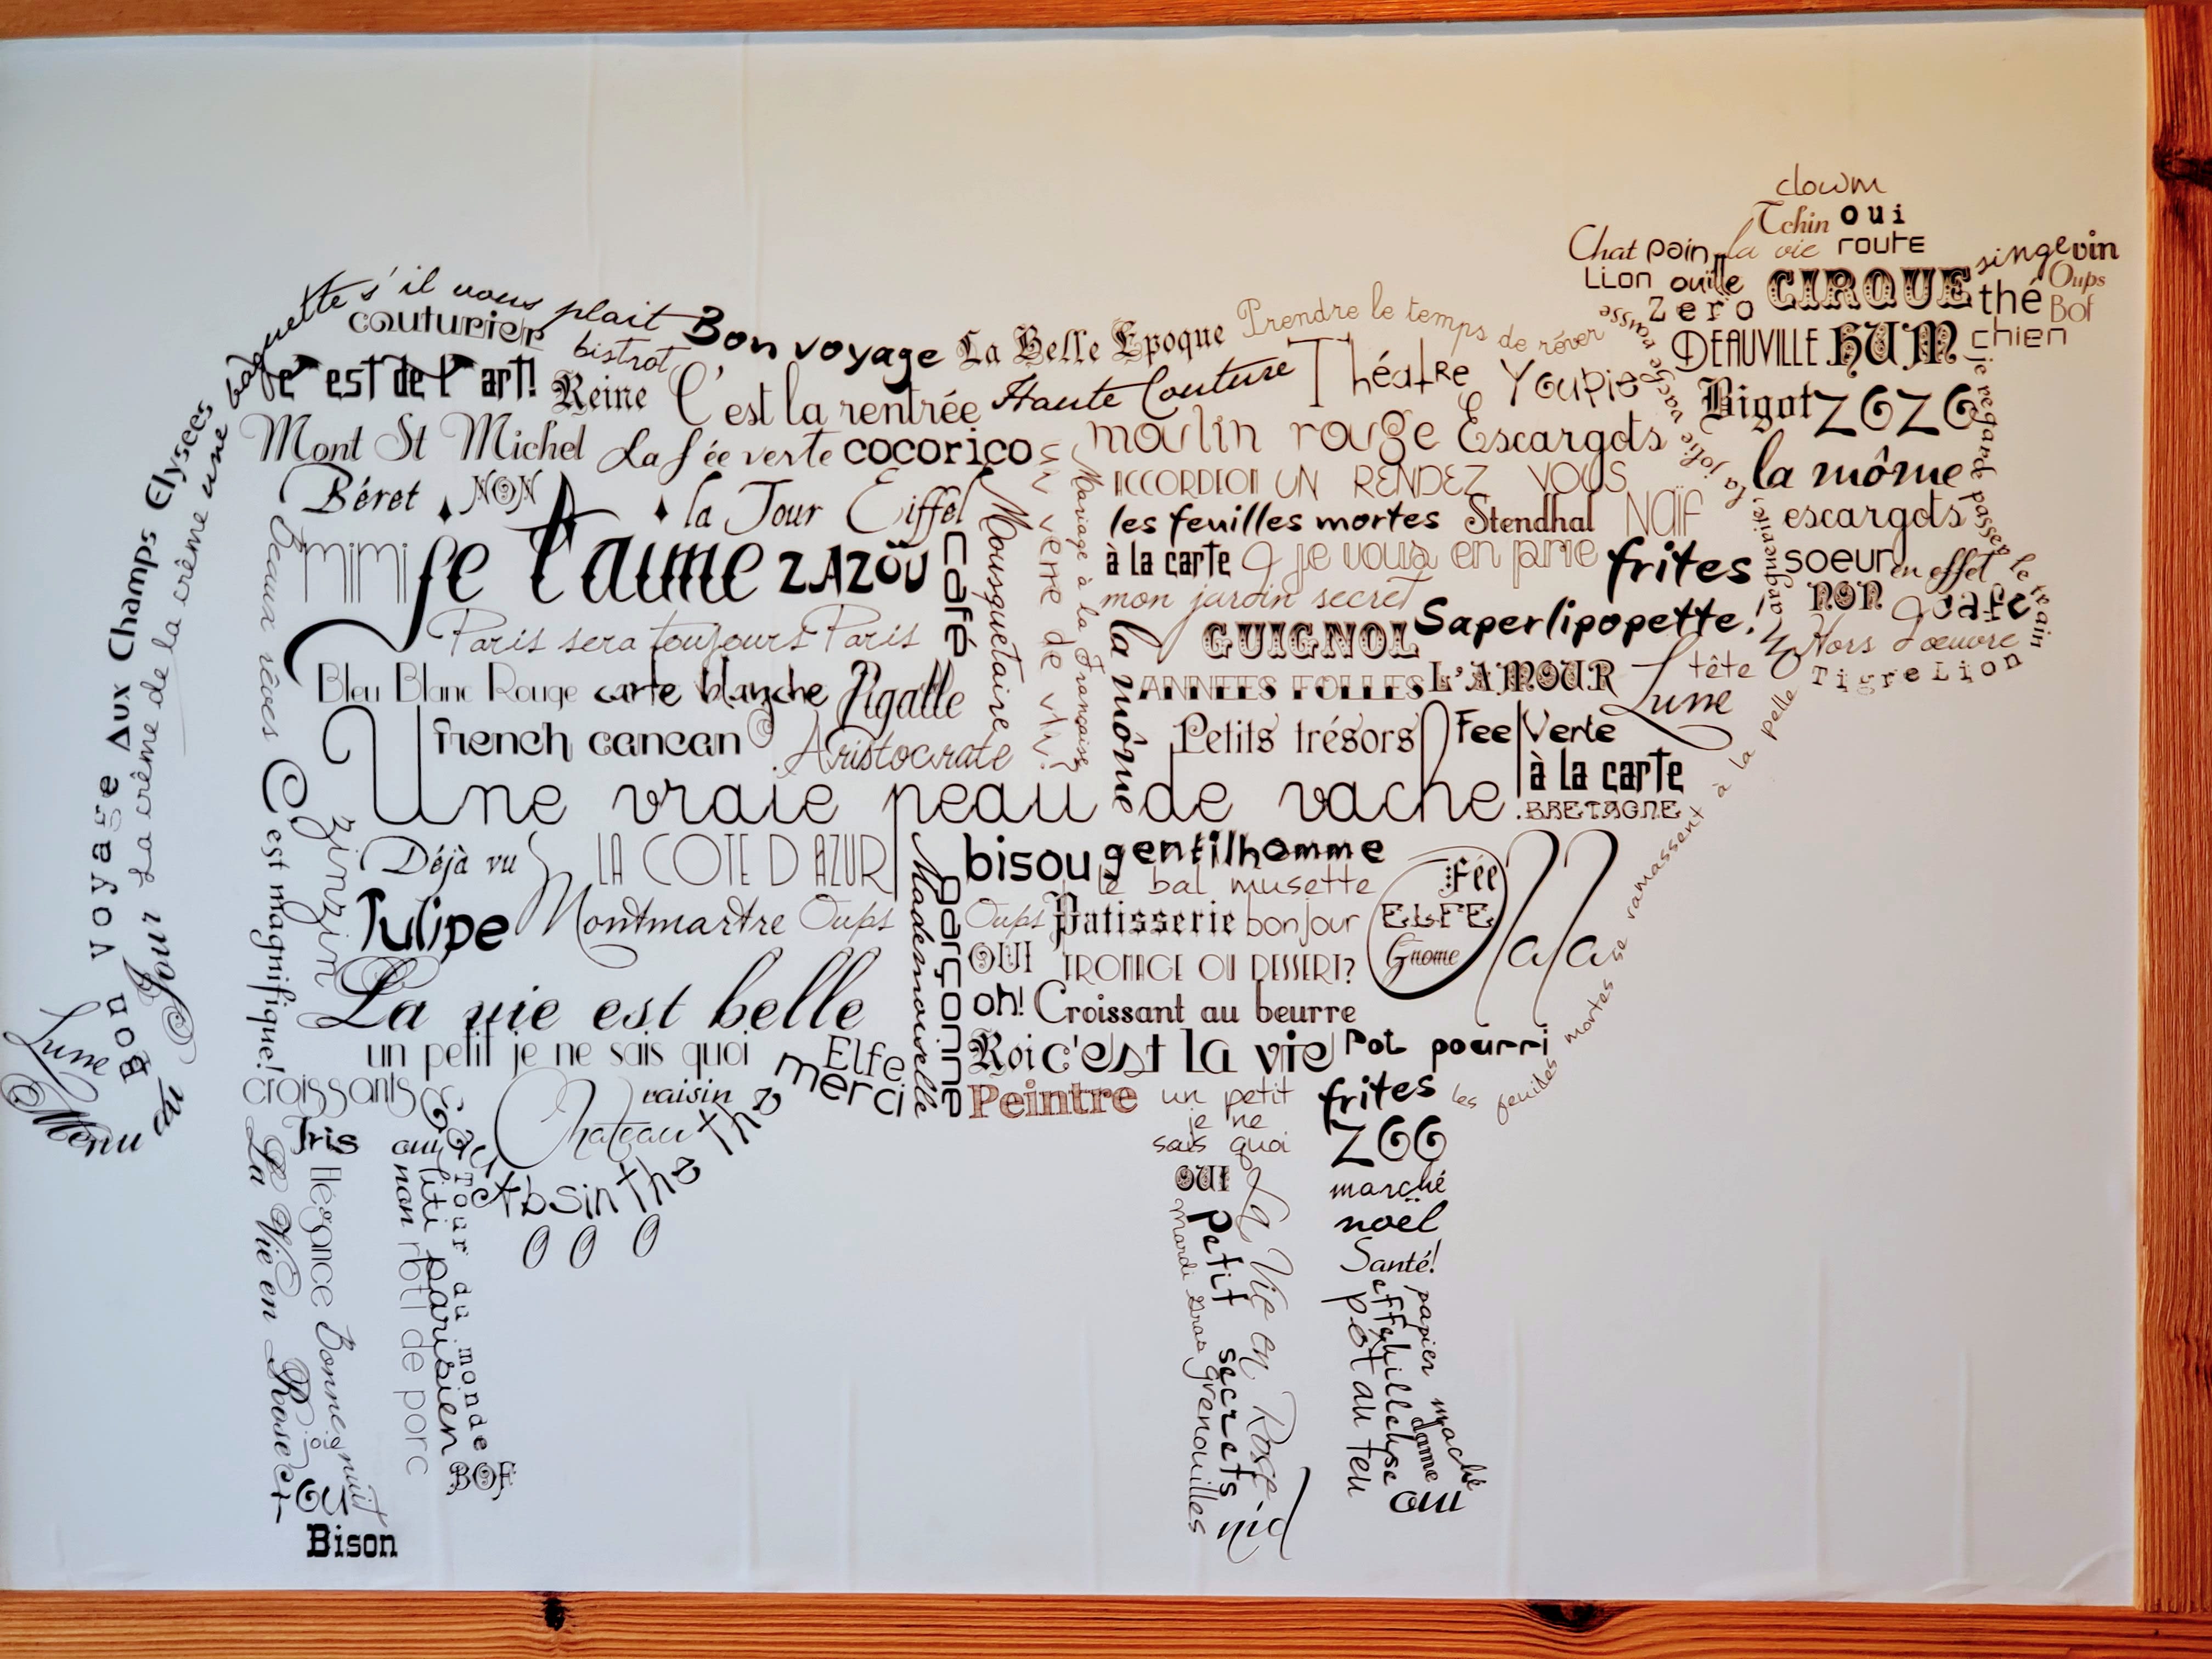 clowm
Tchin oui
Chat pain la vie route
singe vin
Lion ouille CIRQUE thé Oups
Zero Bof
DEAUVILLE HUM chien
Bigot ZOZO
la jolie vache rousse
je regarde passer le train
la môme
escargots
la Marguerite
soeur en effet
NON café
Hors d'œuvre
Tigre Lion
baguette s'il vous plait
couturier
bistrot
Bon voyage
La Belle Epoque
Prendre le temps de rêver
c'est de l'art!
Reine
C'est la rentrée
Haute Couture
Théatre
Youpie
Mont St Michel
La fée verte
cocorico
moulin rouge
Escargots
Béret
NON
la Tour Eiffel
ACCORDEON
UN RENDEZ VOUS
les feuilles mortes
Stendhal
NaïF
MIMI
je t'aime
ZAZOU
café
Mousquetaire
un verre de vin?
Mariage à la Française
à la carte
je vous en prie
frites
mon jardin secret
Saperlipopette!
Paris sera toujours Paris
la môme
GUIGNOL
Bleu Blanc Rouge
carte blanche
Pigalle
ANNEES FOLLES
L'AMOUR
tête
Lune
french cancan
Aristocrate
Petits trésors
Fee Verte
à la carte
Une vraie peau de vache
BRETAGNE
Déjà vu
LA COTE D AZUR
bisou
gentilhomme
le bal musette
Fée
ELFE
Gnome
Tulipe
Montmartre
Oups
Oups
Patisserie
bonjour
Mademoiselle
garçonne
OUI
FROMAGE OU DESSERT?
La vie est belle
oh!
Croissant au beurre
un petit je ne sais quoi
Elfe
merci
Roi
c'est la vie
Pot pourri
les feuilles mortes se ramassent à la pelle
croissants
Chateau
raisin
thé
Peintre
un petit
je ne
sais quoi
frites
ZOO
Absinthe
000
Bon voyage Aux Champs Elysees
La crème de la crème une
Lune
Menu
du Jour
beaux rêves
C'est magnifique!
zinzin
Iris
oui
La Vie en Rose
Elégance
Bonne nuit
non
roti de porc
titi parisien
Tour du monde
BOF
Bison
OUI
Mardi Gras
grenouilles
Petit secrets
La Vie en Rose
nid
marché
noël
Santé!
pot au feu
papier maché
dame
oui